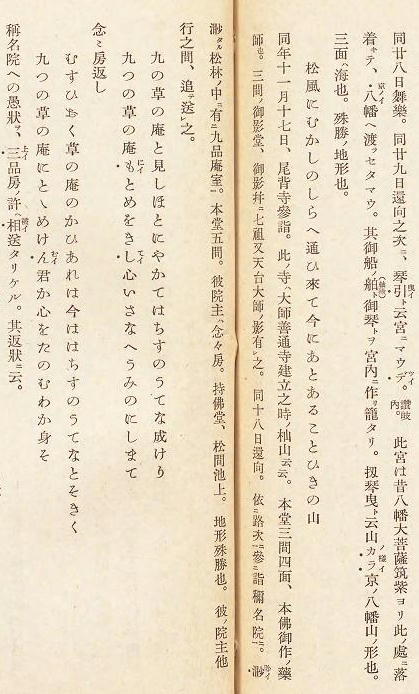 同廿八日舞樂。同廿九日還向之次ニ、琴引ト云宮ニマウデ。讃岐内。此宮は昔八幡大菩薩筑紫ヨリ此ノ處ニ落
着キテ、京ノイ八幡ヘ渡ラセタマウ。其御船ノ舳ト御琴トヲ宮内ニ作リ籠タリ。扨琴曳ト云山カラ京ノ八幡山ノ形也。
三面ハ海也。殊勝ノ地形也。
松風にむかしのしらへ通ひ來て今にあとあることひきの山
同年十一月十七日、尾背寺參詣。此ノ寺ハ大師善通寺建立之時ノ杣山云云。本堂三間四面、本佛御作ノ藥
師也。三間ノ御影堂、御影幷ニ七祖又天台大師ノ影有レ之。同十八日還向。依ニ路次一參ニ詣稱名院一。渺
渺タル松林ノ中ニ有ニ九品庵室一。本堂五間。彼院主ハ念々房。持佛堂、松間池上。地形殊勝也。彼ノ院主他
行之間、追テ送レ之。
九の草の庵と見しほとにやかてはちすのうてな成けり
九つの草の庵もとめをきし心いさなへうみのにしまて
念々房返し
むすひおく草の庵のかひあれは今ははちすのうてなとそきく
九つの草の庵にとゝめけん君か心をたのむわか身そ
稱名院ヘの愚狀ヲ、三品房ノ許ヘ相送タリケル。其返狀ニ云。